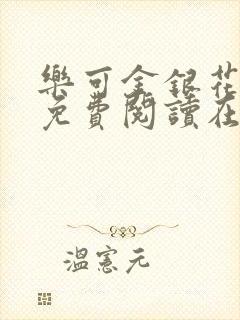 樂可金銀花
免費閱讀在
溫憲元